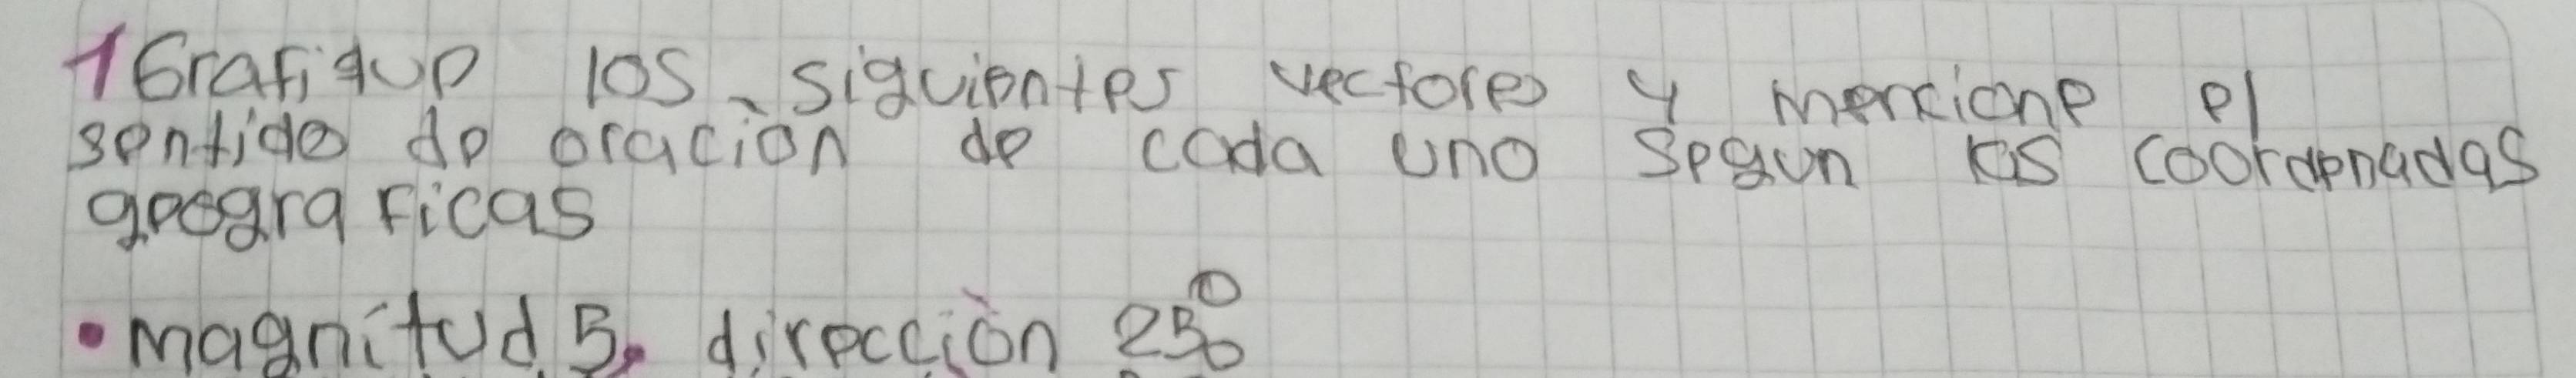 1 Grafique los siguientes vectores y mencione el
sentido de oración de cada uno segun las coordenadas
geograficas
• magnitud 5. dirección 25°